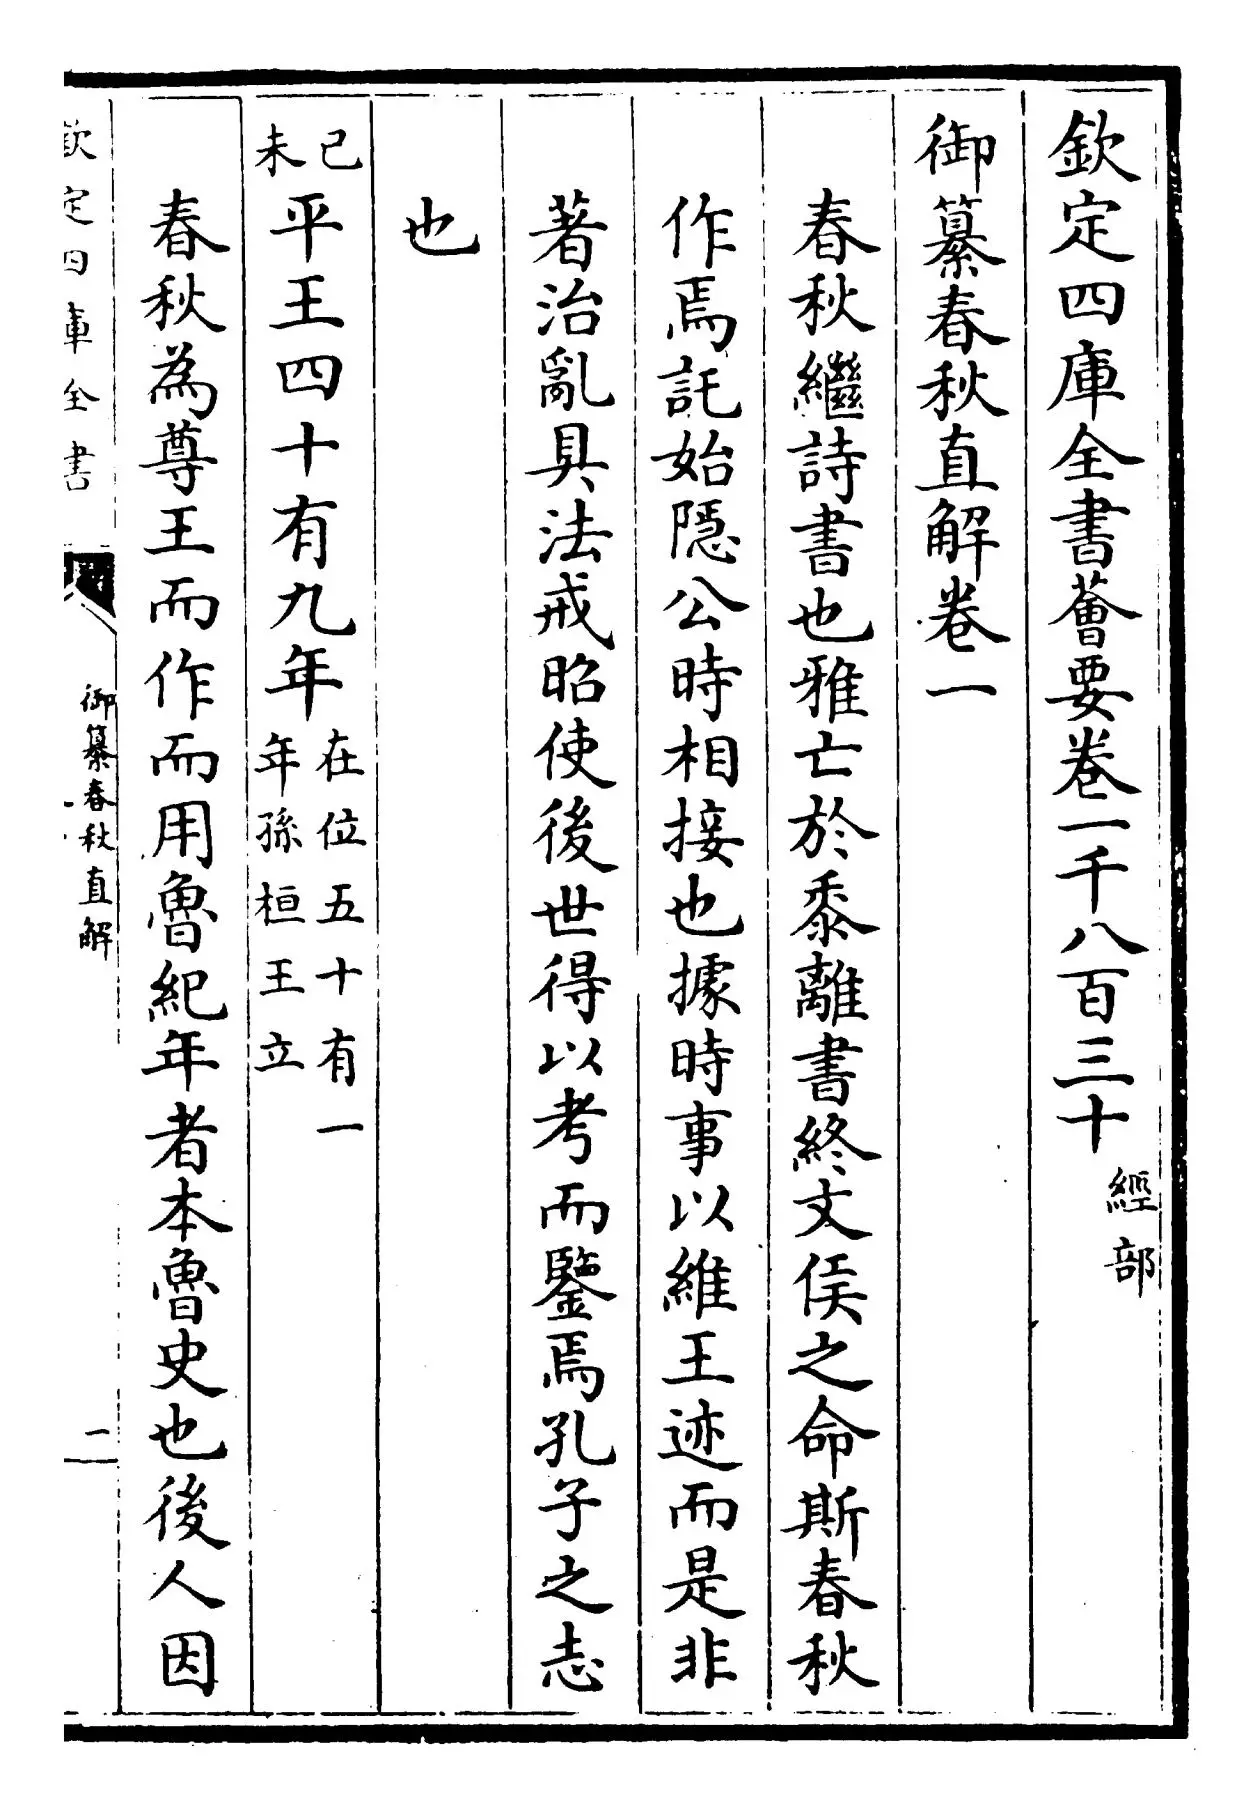 欽定四庫全書薈要卷一千八百三十經部
御纂春秋直解卷一
春秋繼詩書也雅亡於黍離書終文侯之命斯春秋
作焉託始隱公時相接也據時事以維王迹而是非
著治亂具法戒昭使後世得以考而鑒焉孔子之志
也
己未平王四十有九年在位五十有一年孫桓王立
春秋為尊王而作而用魯紀年者本魯史也後人因
欽定四庫全書
御纂春秋直解
二